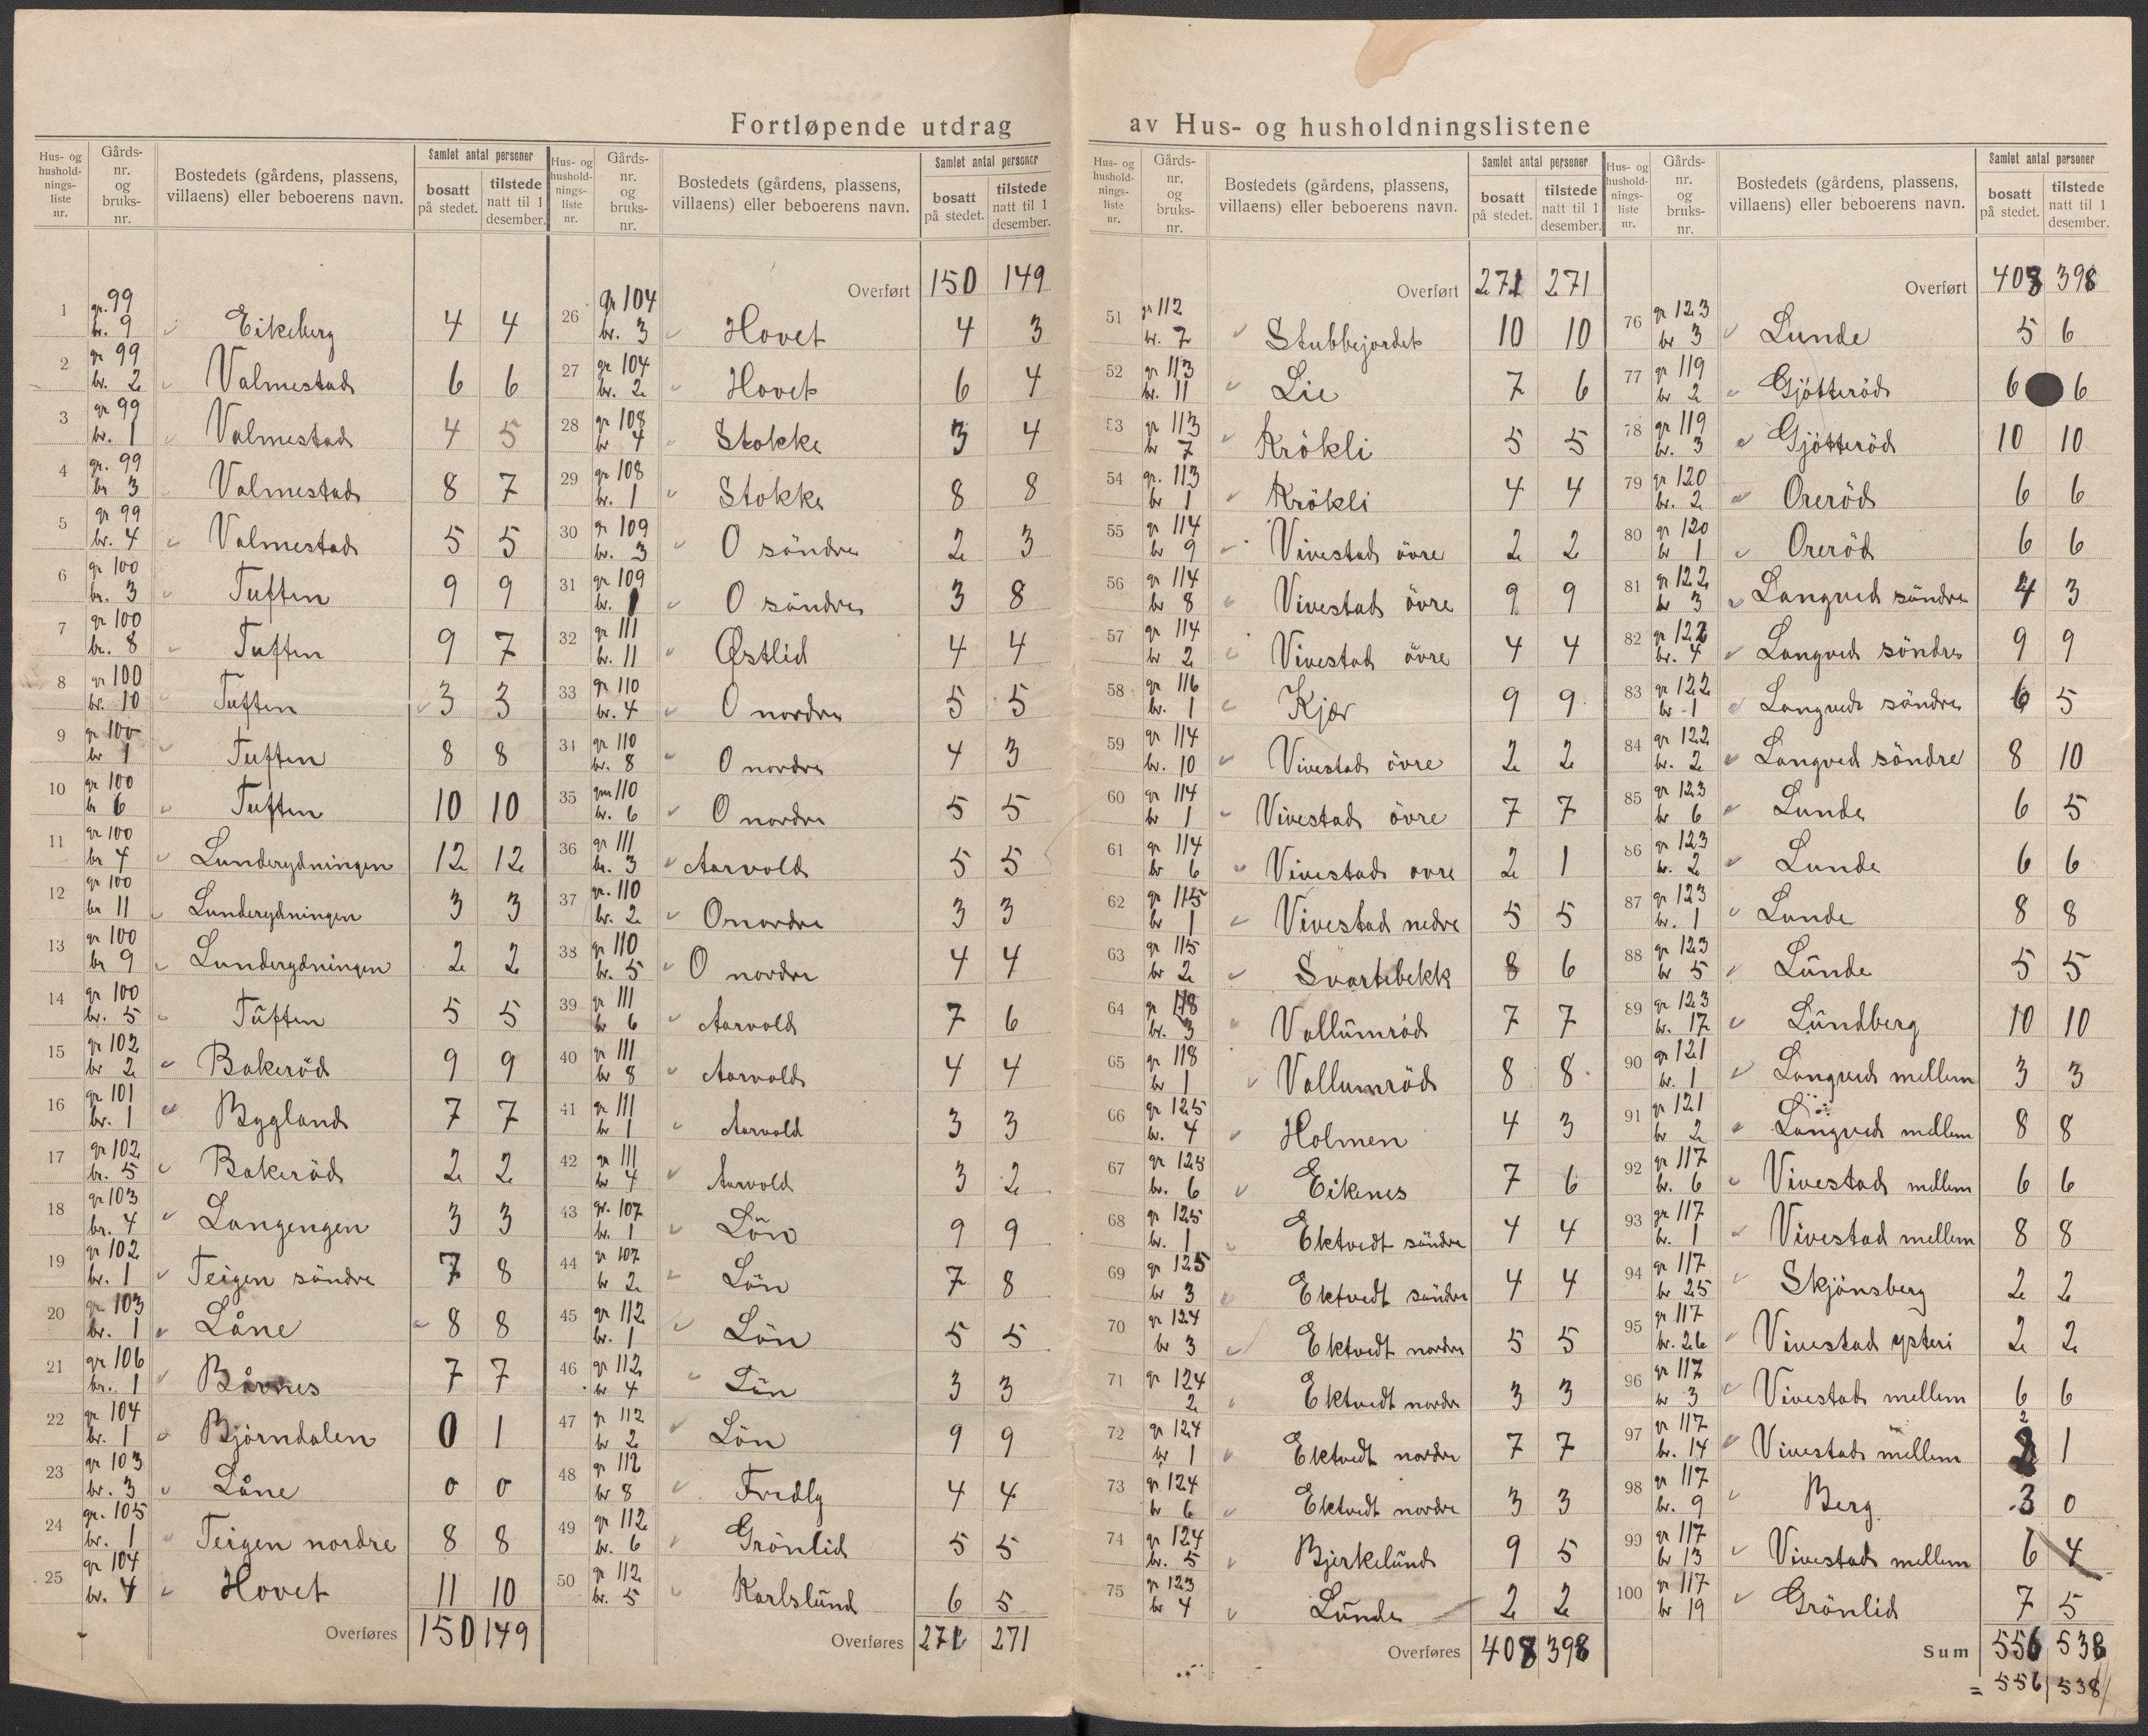 Fortløpende utdrag av Hus- og husholdningslistene
Hus- og hushold-nings-liste nr. Gårds-nr. og bruks-nr. Bostedets (gårdens, plassens, villaens) eller beboerens navn. Samlet antal personer bosatt på stedet. tilstede natt til 1 desember.
1 gr. 99 br. 9 Eikeberg 4 4
2 gr 99 br. 2 Valmestad 6 6
3 gr 99 br. 1 Valmestad 4 5
4 gr. 99 br 3 Valmestad 8 7
5 gr 99 br. 4 Valmestad 5 5
6 gr 100 br. 3 Tuften 9 9
7 gr 100 br. 8 Tuften 9 7
8 gr 100 br. 10 Tuften 3 3
9 gr 100 br 1 Tuften 8 8
10 gr 100 br 6 Tuften 10 10
11 gr 100 br 4 Lunderydningen 12 12
12 gr 100 br 11 Lunderydningen 3 3
13 gr 100 br 9 Lunderydningen 2 2
14 gr 100 br. 5 Tuften 5 5
15 gr 102 br 2 Bakeröd 9 9
16 gr 101 br. 1 Bygland 7 7
17 gr 102 br. 5 Bakeröd 2 2
18 gr 103 br. 4 Langengen 3 3
19 gr 102 br. 1 Teigen söndre 7 8
20 gr 103 br. 1 Låne 8 8
21 gr 106 br. 1 Bårnes 7 7
22 gr 104 br. 1 Björndalen 0 1
23 gr 103 br. 3 Låne 0 0
24 gr. 105 br. 1 Teigen nordre 8 8
25 gr 104 br. 4 Hovet 11 10
Overføres 150 149
Hus- og hushold-nings-liste nr. Gårds-nr. og bruks-nr. Bostedets (gårdens, plassens, villaens) eller beboerens navn. Samlet antal personer bosatt på stedet. tilstede natt til 1 desember.
Overført 150 149
26 gr 104 br. 3 Hovet 4 3
27 gr 104 br. 2 Hovet 6 4
28 gr 108 br 4 Stokke 3 4
29 gr 108 br. 1 Stokke 8 8
30 gr 109 br. 3 O söndre 2 3
31 gr 109 br. 1 O söndre 3 8
32 gr 111 br. 11 Østlid 4 4
33 gr 110 br. 4 O nordre 5 5
34 gr 110 br. 8 O nordre 4 3
35 gr 110 br. 6 O nordre 5 5
36 gr 111 br. 3 Aarvold 5 5
37 gr. 110 br. 2 O nordre 3 3
38 gr 110 br. 5 O nordre 4 4
39 gr 111 br 6 Aarvold 7 6
40 gr 111 br 8 Aarvold 4 4
41 gr 111 br 1 Aarvold 3 3
42 gr 111 br 4 Aarvold 3 2
43 gr. 107 br. 1 Lön 9 9
44 gr 107 br 2 Lön 7 8
45 gr 112 br. 1 Lön 5 5
46 gr 112 br 4 Lön 3 3
47 gr 112 br 2 Lön 9 9
48 gr 112 br 8 Fredly 4 4
49 gr 112 br. 6 Grönlid 5 5
50 gr 112 br. 5 Karlslund 6 5
Overføres 271 271
Hus- og hushold-nings-liste nr. Gårds-nr. og bruks-nr. Bostedets (gårdens, plassens, villaens) eller beboerens navn. Samlet antal personer bosatt på stedet. tilstede natt til 1 desember.
Overført 271 271
51 gr 112 br. 7 Stubbejordet 10 10
52 gr 113 br. 11 Lie 7 6
53 gr 113 br 7 Krökli 5 5
54 gr. 113 br 1 Krökli 4 4
55 gr 114 br 9 Vivestad övre 2 2
56 gr 114 br 8 Vivestad övre 9 9
57 gr 114 br 2 Vivestad övre 4 4
58 gr 116 br. 1 Kjær 9 9
59 gr 114 br. 10 Vivestad övre 2 2
60 gr 114 br 1 Vivestad övre 7 7
61 gr 114 br 6 Vivestad ovre 2 1
62 gr 115 br 1 Vivestad nedre 5 5
63 gr 115 br 2 Svartebekk 8 6
64 gr 118 br. 3 Vallumröd 7 7
65 gr 118 br 1 Vallumröd 8 8
66 gr 125 br. 4 Holmen 4 3
67 gr 125 br. 6 Eikenes 7 6
68 gr 125 br. 1 Ektvedt söndre 4 4
69 gr 125 br 3 Ektvedt söndre 4 4
70 gr 124 br 3 Ektvedt nordre 5 5
71 gr 124 2 Ektvedt nordre 3 3
72 gr 124 br 1 Ektvedt nordre 7 7
73 gr 124 br 6 Ektvedt nordre 3 3
74 gr 124 br. 5 Bjerkelund 9 5
75 gr 123 br 4 Lunde 2 2
Overføres 408 398
Hus- og hushold-nings-liste nr. Gårds-nr. og bruks-nr. Bostedets (gårdens, plassens, villaens) eller beboerens navn. Samlet antal personer bosatt på stedet. tilstede natt til 1 desember.
Overført 408 398
76 gr 123 br 3 Lunde 5 6
77 gr 119 br 2 Gjötteröd 6 6
78 gr 119 br. 3 Gjötteröd 10 10
79 gr 120 br. 2 Oreröd 6 6
80 gr 120 br 1 Oreröd 6 6
81 gr 122 br 3 Langved söndre 4 3
82 gr 122 br. 4 Langved söndre 9 9
83 gr 122 br 1 Langved söndre 6 5
84 gr 122 br. 2 Langved söndre 8 10
85 gr 123 br 6 Lunde 6 5
86 gr 123 br. 2 Lunde 6 6
87 gr 123 br. 1 Lunde 8 8
88 gr 123 br 5 Lunde 5 5
89 gr 123 br. 17 Lundberg 10 10
90 gr 121 br. 1 Langved mellem 3 3
91 gr 121 br 2 Langved mellem 8 8
92 gr 117 br. 6 Vivestad mellem 6 6
93 gr 117 br. 1 Vivestad mellem 8 8
94 gr 117 br 25 Skjönsberg 2 2
95 gr 117 br. 26 Vivestad ysteri 2 2
96 gr 117 br 3 Vivestad mellem 6 6
97 gr 117 br. 14 Vivestad mellem 2 1
98 gr 117 br. 9 Berg 3 0
99 gr 117 br 13 Vivestad mellem 6 4
100 gr 117 br 19 Grönlid 7 5
Sum 556 538
= 556 538